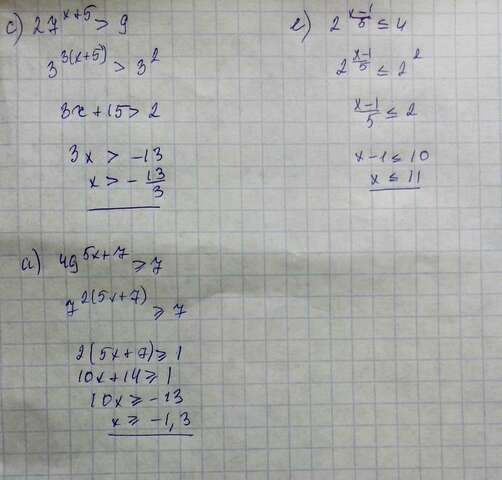 c) 27^{x+5} > 9
3^{3(x+5)} > 3^2
3x + 15 > 2
3x > -13
x > -\frac{13}{3}
e) 2^{\frac{x-1}{5}} ≤ 4
2^{\frac{x-1}{5}} ≤ 2^2
\frac{x-1}{5} ≤ 2
x - 1 ≤ 10
x ≤ 11
a) 49^{5x+7} ≥ 7
7^{2(5x+7)} ≥ 7
2(5x+7) ≥ 1
10x + 14 ≥ 1
10x ≥ -13
x ≥ -1,3